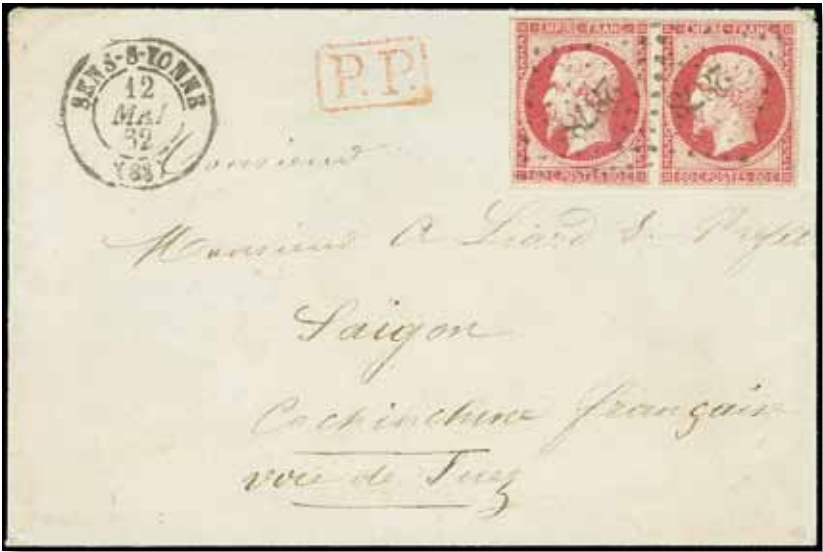 SENS-S-YONNE
12
MAI
62
(88)
P.P.
EMPIRE FRANC
EMPIRE FRANC
80 C. POSTES 80 C.
80 C. POSTES 80 C.
Monsieur
Monsieur A Liard S. Préfet
Saïgon
Cochinchine française
voie de Suez